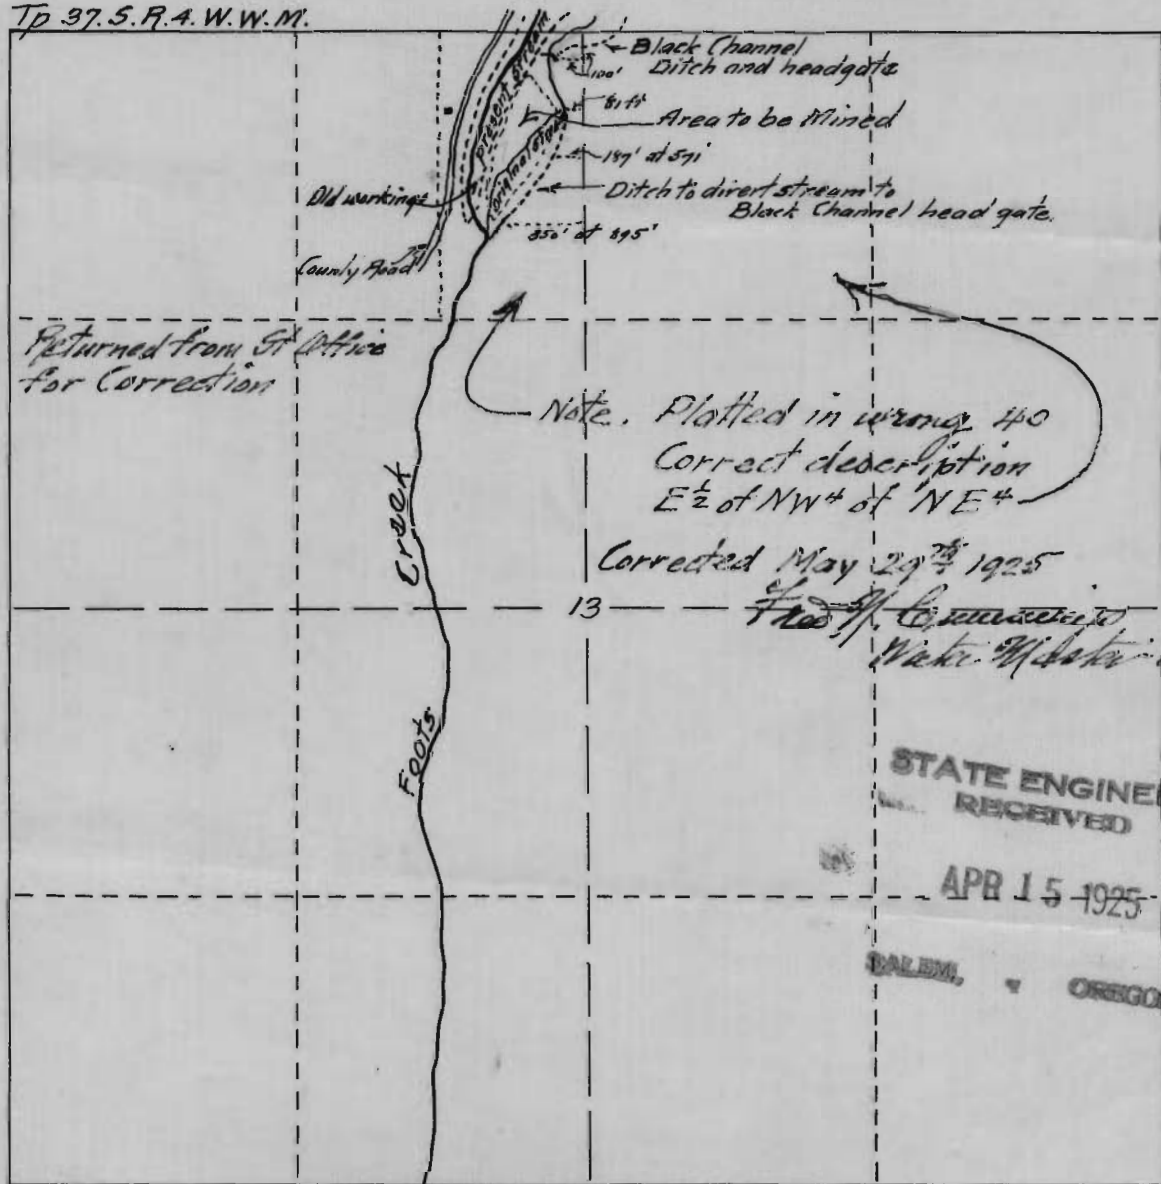 Tp 37.S.R.4.W.W.M.
Black Channel
Ditch and headgate
100'
81 ft
Area to be Mined
Present Stream
Original Stream
187' at 571'
Old workings
Ditch to divert stream to
Black Channel head gate.
850' at 895'
County Road
Returned from St Office
for Correction
Note. Platted in wrong 40
Correct description
E½ of NW⁴ of NE⁴
Corrected May 29th 1925
Fred N.
Water Master
13
Foots Creek
STATE ENGINEE
RECEIVED
APR 15 1925
SALEM, OREGO